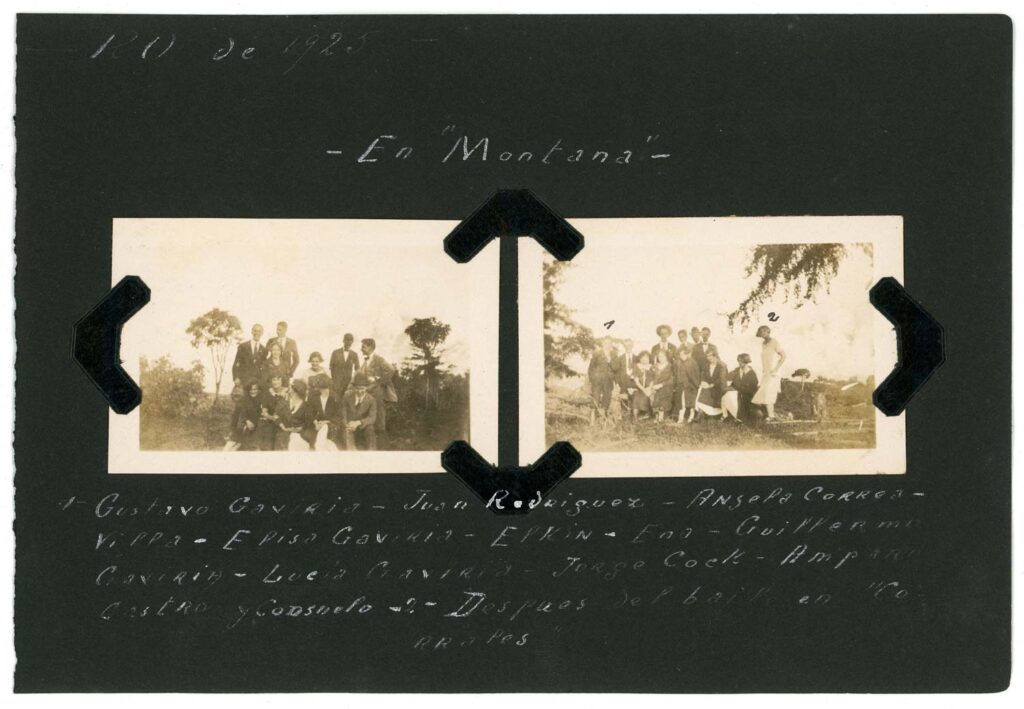 de 1925 -
- En "Montana" -
1 2
1- Gustavo Gaviria - Juan Rodriguez - Angela Correa -
Villa - Elisa Gaviria - Elkin - Ena - Guillermo
Gaviria - Lucia Gaviria - Jorge Cock - Amparo
Castro y Consuelo - 2 - Despues del baile en "Co-
rrales"